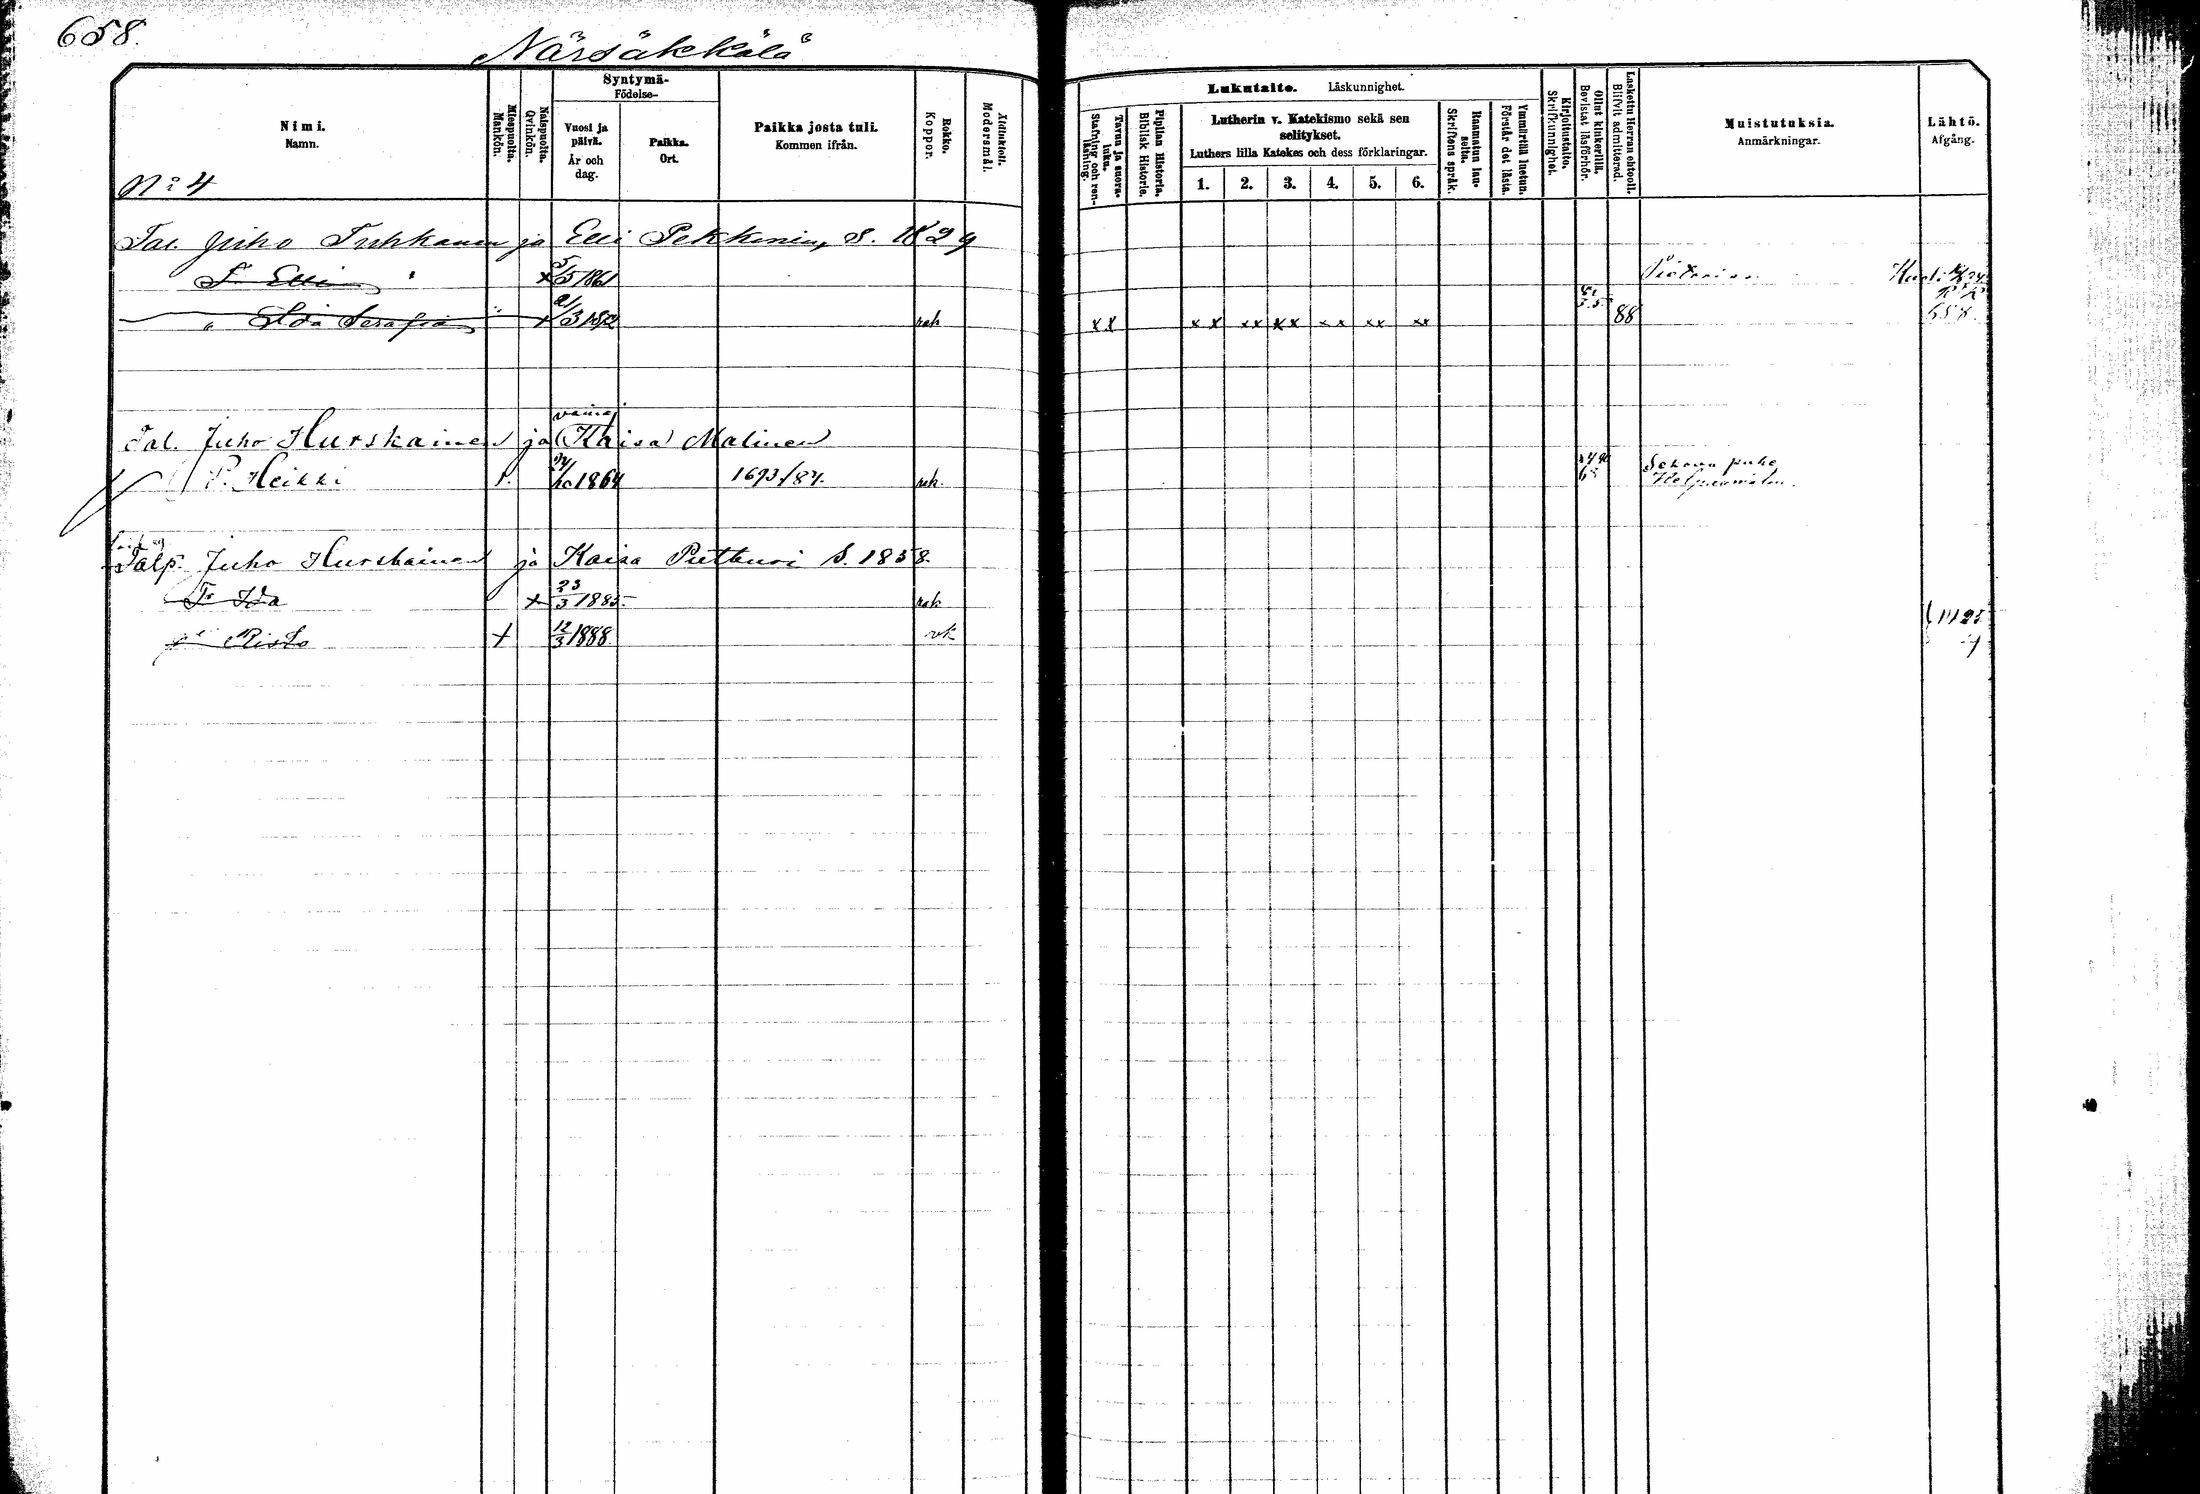 658.
Närsäkkälä
Nimi.
Namn.
Miespuolta.
Mankön.
Naispuolta.
Qvinkön.
Syntymä-
Födelse-
Vuosi ja päivä.
År och dag.
Paikka.
Ort.
Paikka josta tuli.
Kommen ifrån.
Rokko.
Koppor.
Äidinkieli.
Modersmål.
Lukutaito. Läskunnighet.
Tavau ja suora-luku.
Stafning och ren-läsning.
Piplian Historia.
Biblisk Historie.
Lutherin v. Katekismo sekä sen
selitykset.
Luthers lilla Katekes och dess förklaringar.
1. 2. 3. 4. 5. 6.
Raamatun lau-seita.
Skriftens språk.
Ymmärtää luetun.
Förstår det lästa.
Kirjoitustaito.
Skrifkunnighet.
Ollut kinkerillä.
Bevistat läsförhör.
Laskettu Herran ehtooll.
Blifvit admitterad.
Muistutuksia.
Anmärkningar.
Lähtö.
Afgång.
No 4
Tal. Juho Tuhkanen ja Elli Pekkonin, S. 1829
T. Elli x 5/5 1861
" Ida Serafia x 21/3 1872 rok xx xx xx xx xx xx xx 88 658.
vaimo
Tal. Juho Hurskainen ja Kaisa Malinen
P. Heikki 24/10 1864 1693/84. rok.
Talp. Juho Hurskainen ja Kaisa Putturi S. 1858.
T. Ida x 23/3 1885 rok
p. Risto x 12/3 1888 rk